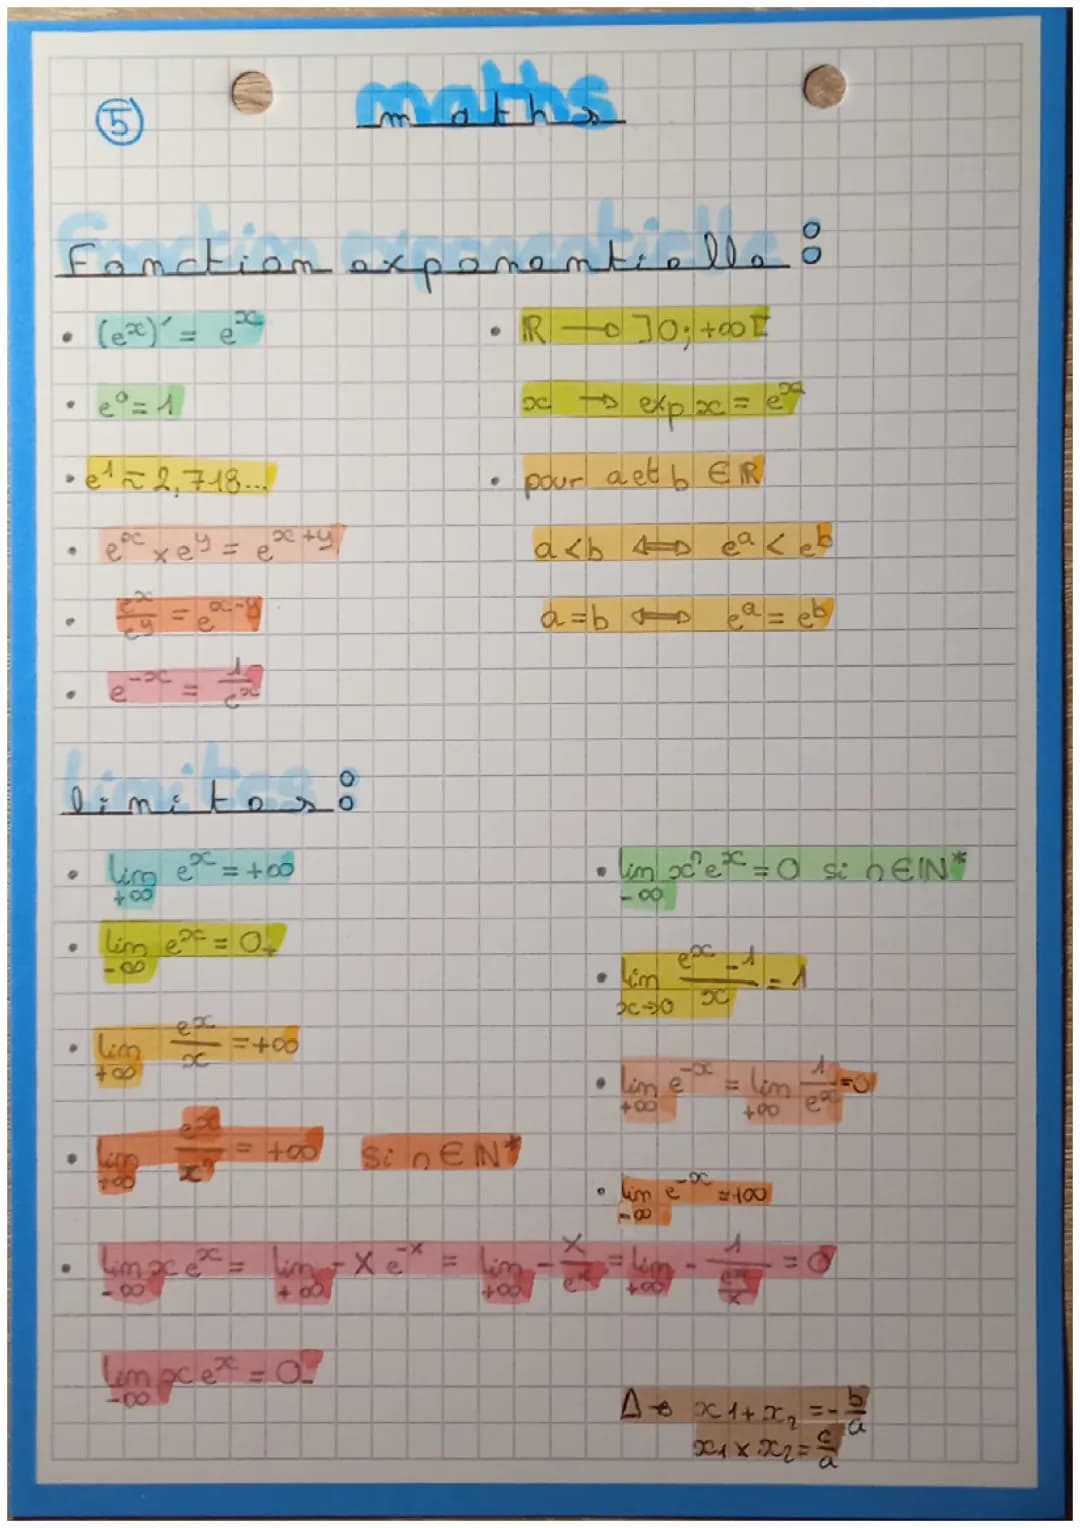 5
maths
Fonction exponentielle :
• (eˣ)' = eˣ
• e⁰ = 1
• e¹ ≈ 2,718...
• eˣ × eʸ = eˣ⁺ʸ
• eˣ/eʸ = eˣ⁻ʸ
• e⁻ˣ = 1/eˣ
• ℝ → ]0; +∞[
x → exp x = eˣ
• pour a et b ∈ ℝ
a < b ⟺ eᵃ < eᵇ
a = b ⟺ eᵃ = eᵇ
limites :
• lim +∞ eˣ = +∞
• lim -∞ eˣ = 0₊
• lim +∞ eˣ/x = +∞
• lim +∞ eˣ/xⁿ = +∞ si n ∈ ℕ*
• lim -∞ xⁿeˣ = 0 si n ∈ ℕ*
• lim x→0 (eˣ - 1)/x = 1
• lim +∞ e⁻ˣ = lim +∞ 1/eˣ = 0
• lim -∞ e⁻ˣ = +∞
• lim -∞ x eˣ = lim +∞ - X e⁻ˣ = lim +∞ - X/eˣ = lim +∞ - 1/(eˣ/x) = 0
lim -∞ x eˣ = 0₋
Δ → x1 + x₂ = - b/a
x₁ × x₂ = c/a